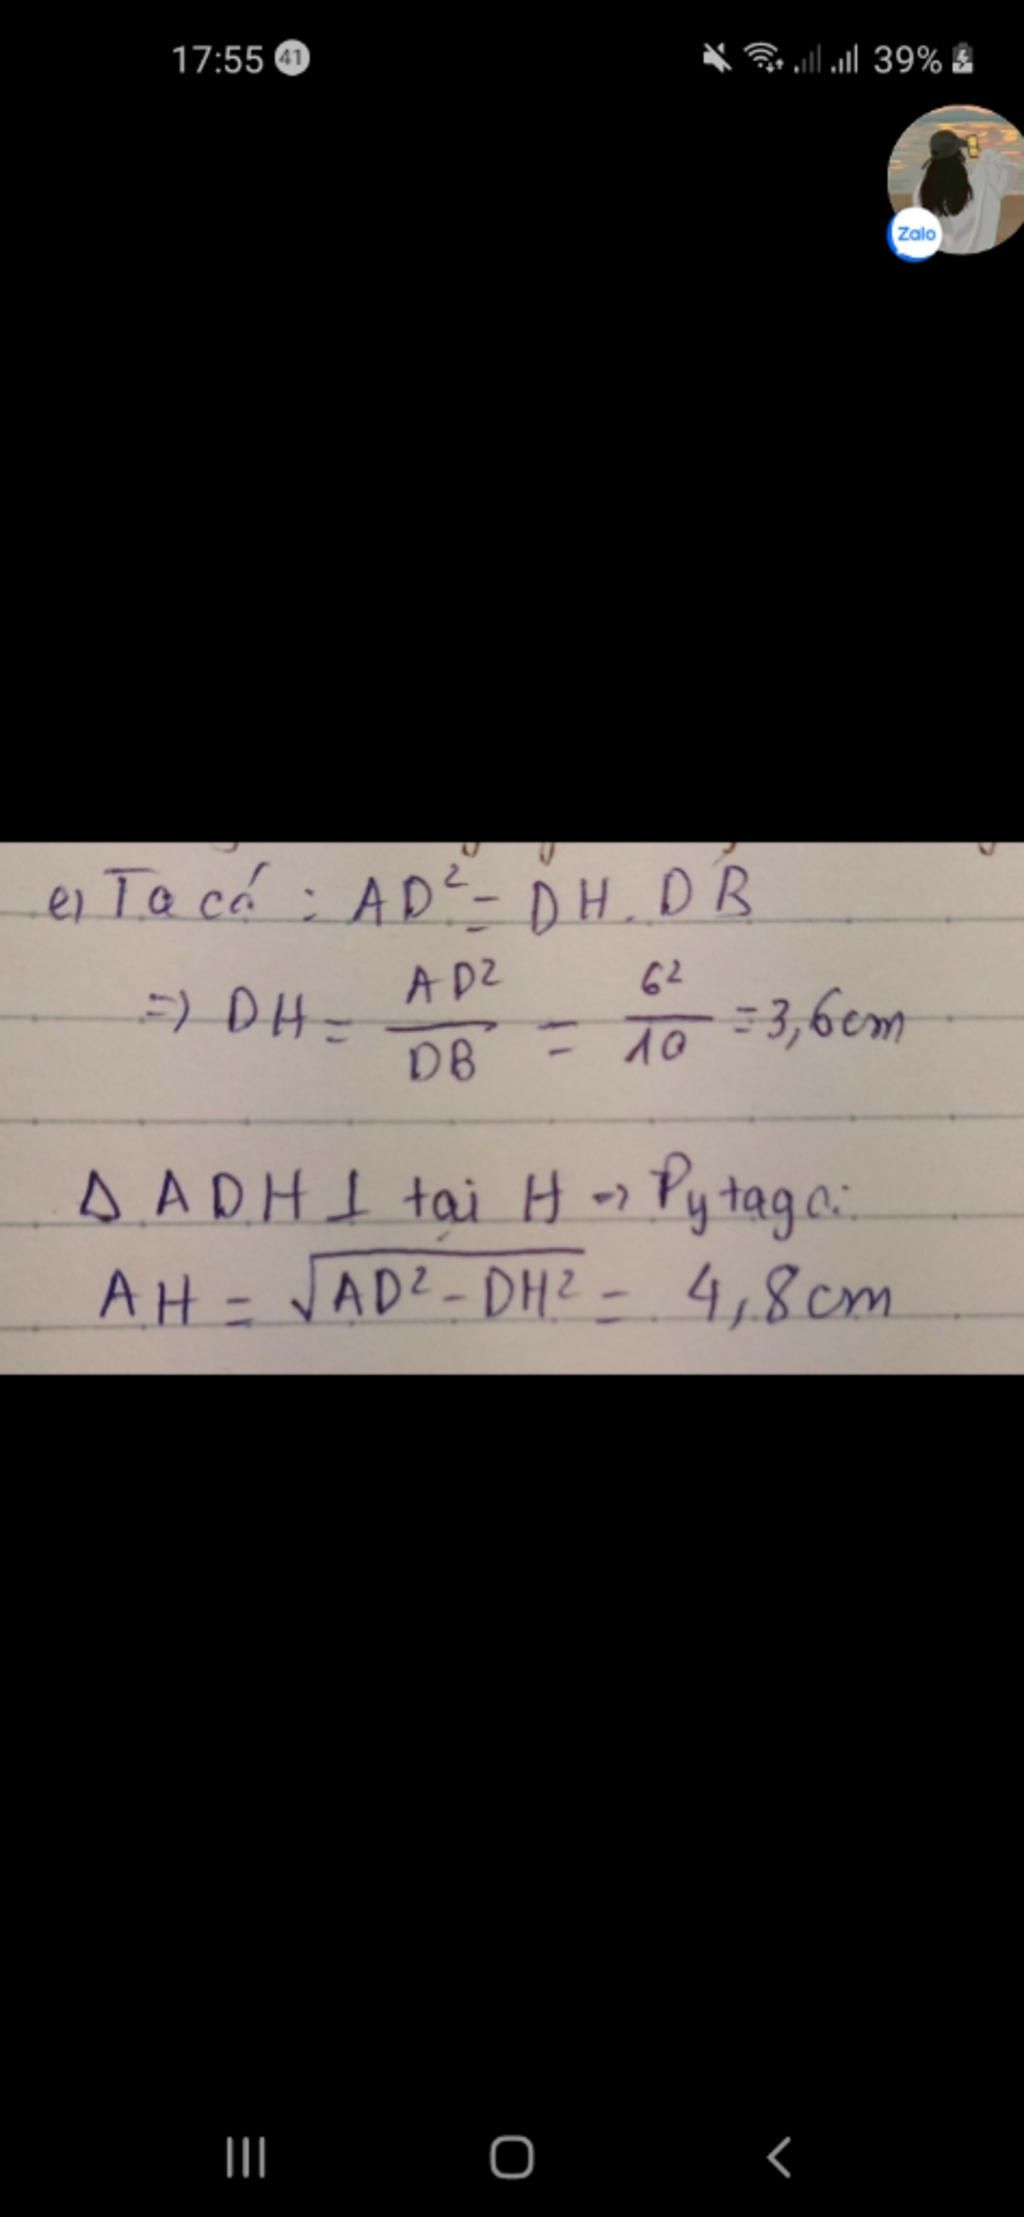 17:55 41 39%
Zalo
e) Ta có : AD² = DH . DB
=> DH = AD²/DB = 6²/10 = 3,6cm
Δ ADH ⊥ tại H => Pytago:
AH = √AD² - DH² = 4,8cm